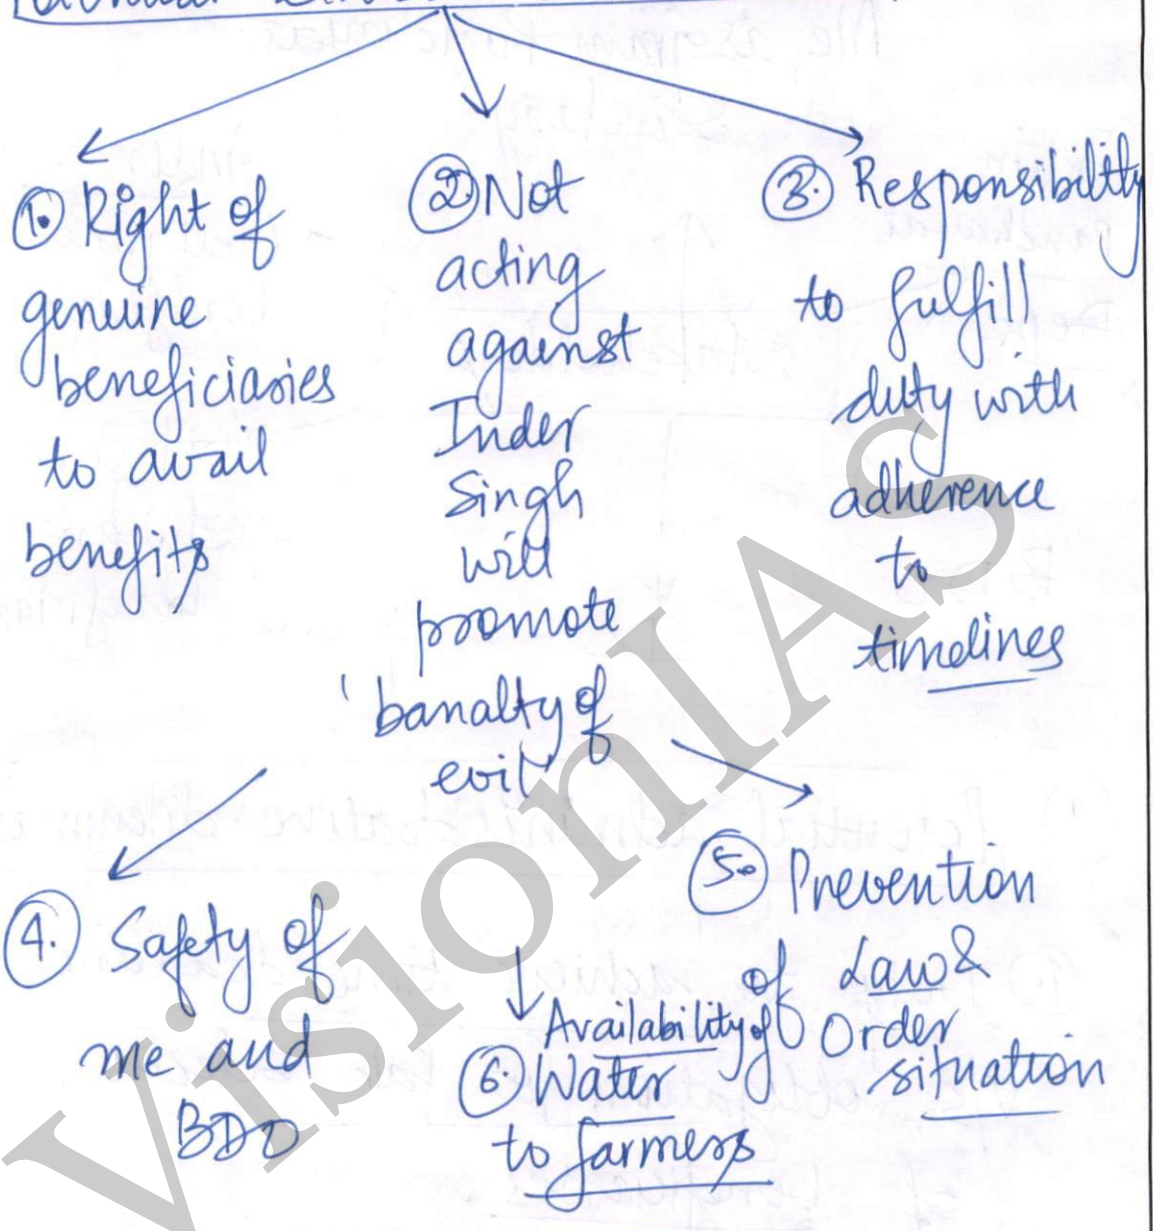 1. Right of
genuine
beneficiaries
to avail
benefits
2. Not
acting
against
Inder
Singh
will
promote
'banalty of
evil'
3. Responsibility
to fulfill
duty with
adherence
to
timelines
4. Safety of
me and
BDO
5. Prevention
of Law &
Order
situation
6. Availability of
Water
to farmers
VisionIAS